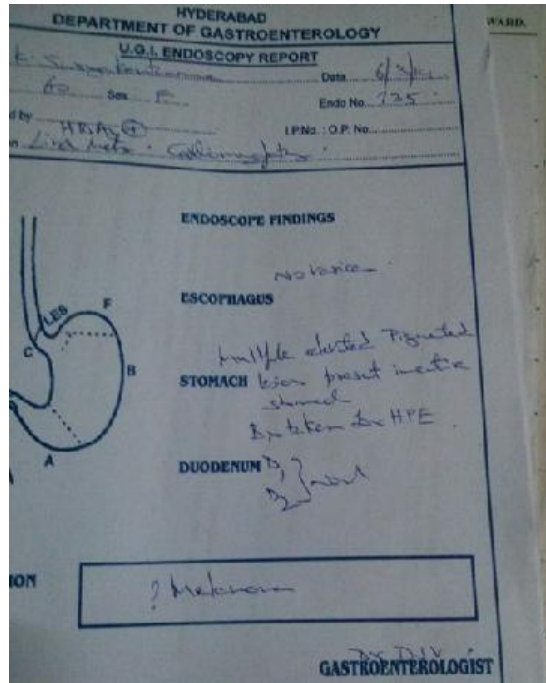 HYDERABAD
DEPARTMENT OF GASTROENTEROLOGY
WARD.
U.G.I. ENDOSCOPY REPORT
Date
60 Sex F Endo No. 725
by HBSAg + I.P.No. : O.P. No.
Liver Mets.
ENDOSCOPE FINDINGS
No varices
ESCOPHAGUS
LES F
Multiple elevated Pigmented
C B STOMACH lesion present in entire
stomach
Bx taken for HPE
A
DUODENUM D1
D2 } Normal
ION ? Melanoma
GASTROENTEROLOGIST